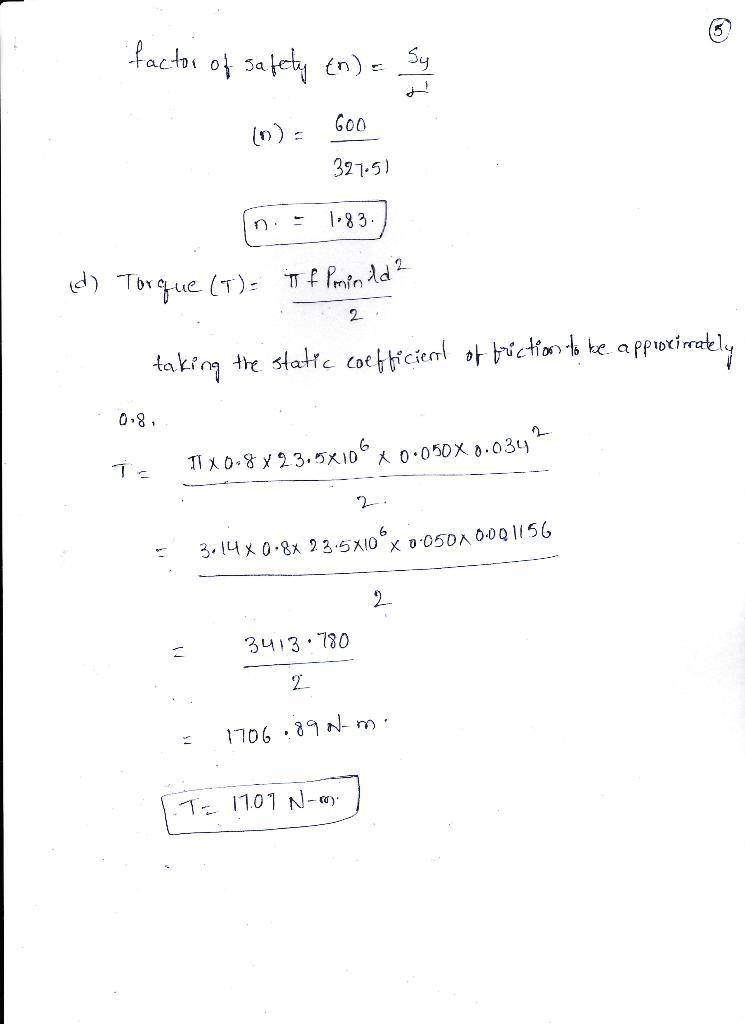 5
factor of safety (n) = Sy / σ'
(n) = 600 / 327.51
n. = 1.83.
(d) Torque (T) = π f Pmin ld² / 2
taking the static coefficient of friction to be approximately
0.8,
T = π x 0.8 x 23.5x10⁶ x 0.050 x 0.034² / 2.
= 3.14 x 0.8x 23.5x10⁶ x 0.050x 0.001156 / 2
= 3413.780 / 2
= 1706.89 N-m.
T = 1707 N-m.